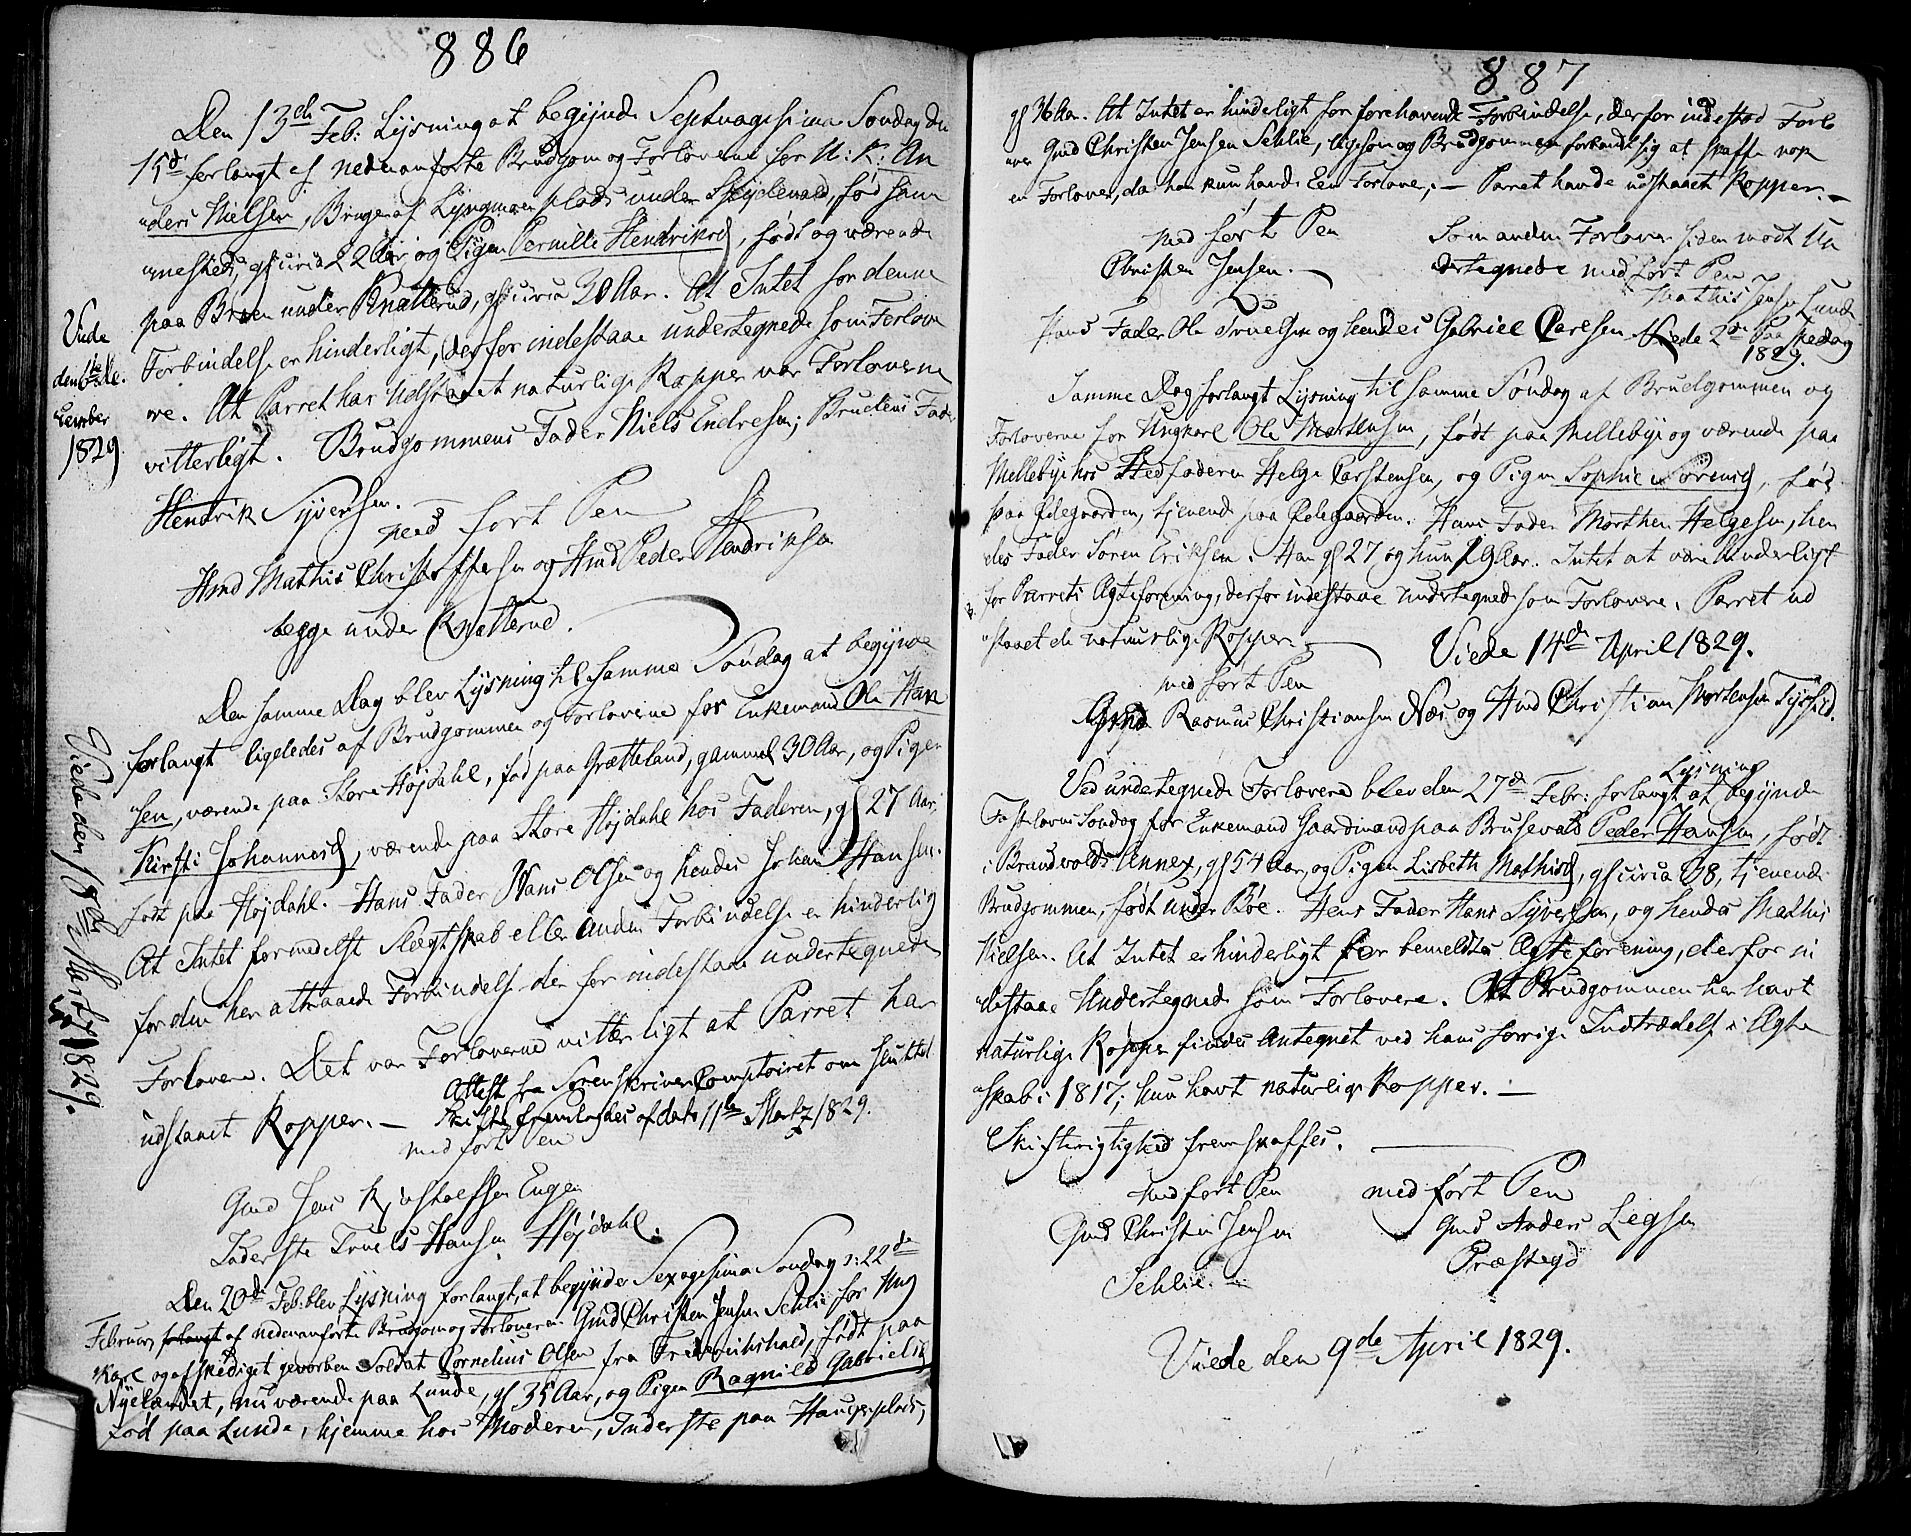 886
Den 13de Feb: Lysning at begynde Septuagesima Søndag den
15de forlangt af nedenanførte Brudgom og Forloverne for U: K: An
ders Nielsen, Bruger af Lyngmoen plads under Skydevold, fød sam
mesteds, gl circa 22 Aar og Pigen Pernille Hendriksd, født og værende
paa Braen under Knatterud, gl circa 30 Aar. At Intet for denne
Forbindelse er hinderligt, derfor indestaae undertegnede som Forlove
re. At Parret har udstaaet naturlige Kopper var Forloverne
vitterligt. Brudgommens Fader Niels Endresen; Brudens Fader
Hendrik Syversen.
Viede
den 6te De
cember
1829
med ført Pen
Hmd Mathis Christoffersen og Hmd Peder Hendriksen
begge under Knatterud.
Den samme Dag blev Lysning til samme Søndag at begynde
forlangt ligeledes af Brudgommen og Forloverne for Enkemand Ole Han
sen, værende paa Store Højdahl, fød paa Grætteland, gammel 30 Aar, og Pigen
Kirsti Johannesd, værende paa Store Højdahl hos Faderen, gl 27 Aar,
født paa Højdahl. Hans Fader Hans Olsen og hendes Johan Hansen.
At Intet formedelst Slægtskab eller anden Forbindelse er hinderlig
for den her attraaede Forbindelse derfor indestaae undertegnede
Forlovere. Det var Forloverne vitterligt at Parret har
udstaaet Kopper. — Attest fra Sorenskriver Comptoiret om sluttet
Skifte fremlagdes af dato 11te Martz 1829.
Viede den 18de Martz 1829.
med ført Pen
Gmd Jens Kristoffersen Enger
Inderste Truels Hansen Højdahl.
Den 20de Feb: blev Lysning forlangt, at begynde Sexagesima Søndag d: 22de
Februar, forlangt af nedenanførte Brudgom og Forloveren Gmd Christen Jensen Sehlie for Ung
karl og afskediget gevorben Soldat Cornelius Olsen fra Frederikshald, født paa
Nyelandet, nu værende paa Lunde, gl 35 Aar, og Pigen Ragnild Gabrielsd
fød paa Lunde, hjemme hos Moderen, Inderste paa Haugeplads,
887
gl 36 Aar. At Intet er hinderligt for forehavende Forbindelse, derfor indestod Forlo
veren Gmd Christen Jensen Sehlie, ligesom og Brudgommen forbandt sig at skaffe nok
en Forlover, da han kun havde Een Forlover. — Parret havde udstaaet Kopper. —
med ført Pen
Christen Jensen. —
Som anden Forlover siden mødt Un
dertegnede med ført Pen
Mathis Jensen Lunde
Hans Fader Ole Truelsen og hendes Gabriel Carlsen Viede 2den Paaskedag
1829.
Samme Dag forlangt Lysning til samme Søndag af Brudgommen og
Forloverne for Ungkarl Ole Mortensen, født paa Mellebye og værende paa
Mellebye hos Stedfaderen Helge Carstensen, og Pigen Sophie Sørensd, fød
paa Ødegaarden, tjenende paa Ødegaarden. Hans Fader Morthen Helgesen, hen
des Fader Søren Eriksen. Han gl 27 og hun 19 Aar. Intet at være hinderligt
for Parrets Ægteforening, derfor indestaae undertegnede som Forlovere. Parret ud
staaet de naturlige Kopper. —
Viede 14de April 1829.
med ført Pen
Gmd Rasmus Christiansen Næs og Hmd Christian Mortensen
Ved undertegnede Forlovere blev den 27de Febr: forlangt Lysning at begynde
Fastelavns Søndag for Enkemand Gaardmand paa Brusevold Peder Hansen, født
i Brandvolds Annex, gl 54 Aar, og Pigen Lisbeth Mathisd, gl circa 38, tjenende
Brudgommen, født under Bøe. Hans Fader Hans Syversen, og hendes Mathis
Nielsen. At Intet er hinderligt for bemeldte Ægteforening, derfor in
destaae Undertegnede som Forlovere. At Brudgommen har havt
naturlige Kopper findes Antegnet ved hans forrige Indtrædelse i Ægte
skab i 1817; hun havt naturlige Kopper. —
Skifterigtighed fremskaffes.
med ført Pen
Gmd Christen Jensen
Sehlie. —
med ført Pen
Gmd Anders Legsen
Præstegd
Viede den 9de April 1829.